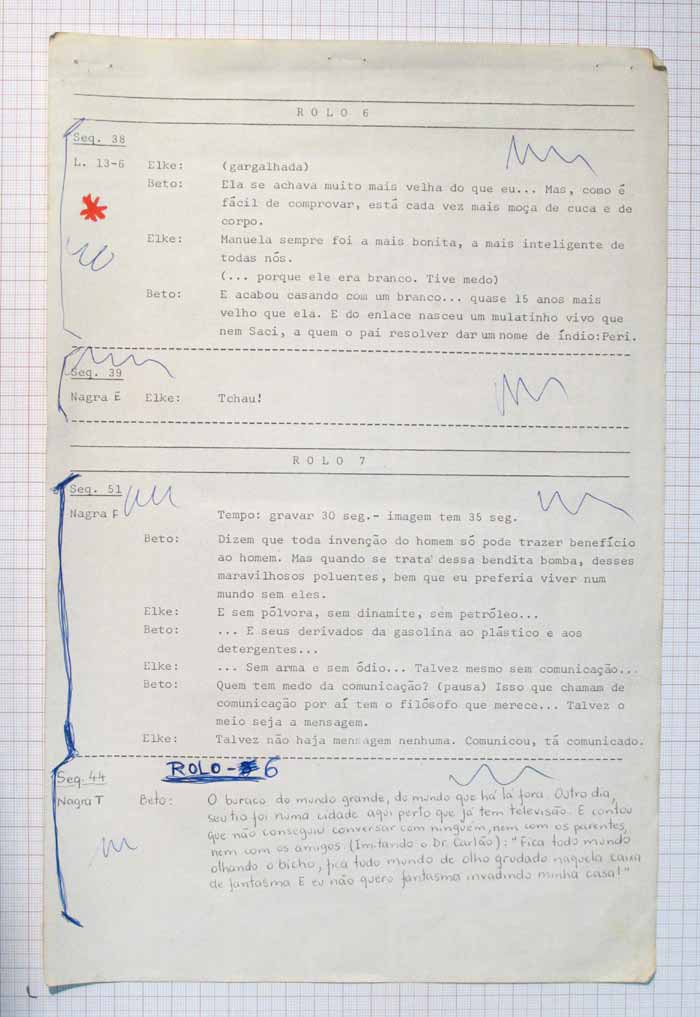 ROLO 6
Seq. 38
L. 13-6 Elke: (gargalhada)
Beto: Ela se achava muito mais velha do que eu... Mas, como é
fácil de comprovar, está cada vez mais moça de cuca e de
corpo.
Elke: Manuela sempre foi a mais bonita, a mais inteligente de
todas nós.
(... porque ele era branco. Tive medo)
Beto: E acabou casando com um branco... quase 15 anos mais
velho que ela. E do enlace nasceu um mulatinho vivo que
nem Saci, a quem o pai resolver dar um nome de índio:Peri.
Seq. 39
Nagra E Elke: Tchau!
ROLO 7
Seq. 51
Nagra F Tempo: gravar 30 seg.- imagem tem 35 seg.
Beto: Dizem que toda invenção do homem só pode trazer benefício
ao homem. Mas quando se trata dessa bendita bomba, desses
maravilhosos poluentes, bem que eu preferia viver num
mundo sem eles.
Elke: E sem pólvora, sem dinamite, sem petróleo...
Beto: ... E seus derivados da gasolina ao plástico e aos
detergentes...
Elke: ... Sem arma e sem ódio... Talvez mesmo sem comunicação...
Beto: Quem tem medo da comunicação? (pausa) Isso que chamam de
comunicação por aí tem o filósofo que merece... Talvez o
meio seja a mensagem.
Elke: Talvez não haja mensagem nenhuma. Comunicou, tá comunicado.
ROLO - 6
Seq. 44
Nagra T Beto: O buraco do mundo grande, do mundo que há lá fora. Outro dia,
seu tio foi numa cidade aqui perto que já tem televisão. E contou
que não conseguiu conversar com ninguém, nem com os parentes,
nem com os amigos. (Imitando o Dr. Carlão): "Fica todo mundo
olhando o bicho, fica tudo mundo de olho grudado naquela caixa
de fantasma. E eu não quero fantasma invadindo minha casa!"